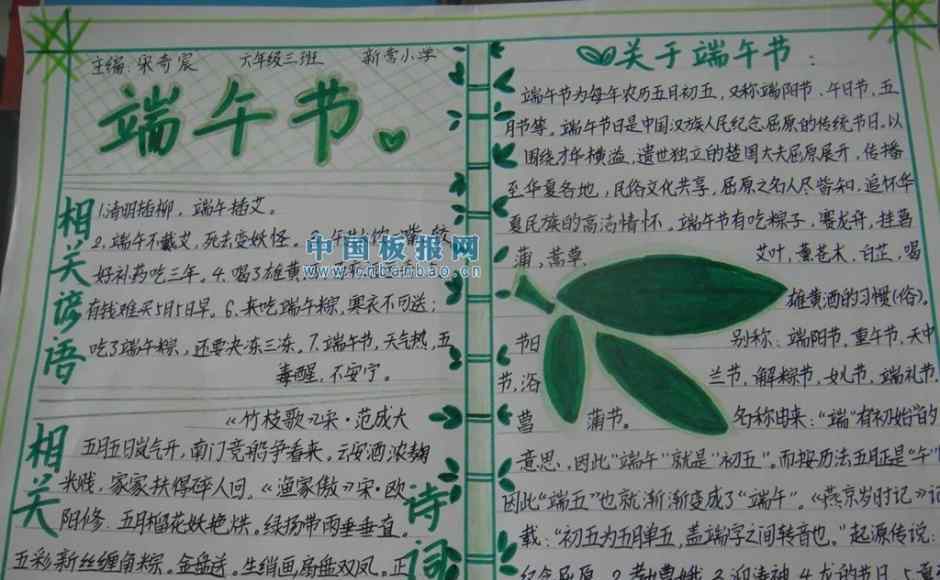 主编：宋奇宸 六年级三班 新营小学
端午节
相关谚语
1.清明插柳，端午插艾。
2.端午不戴艾，死去变妖怪。3.午时水饮一嘴，较
好补药吃三年。4.喝了雄黄
有钱难买5月5日旱。6.未吃端午粽，寒衣不可送；
吃了端午粽，还要冻三冻。7.端午节，天气热，五
毒醒，不安宁。
相关诗词
《竹枝歌》宋·范成大
五月五日岚气开，南门竞船争看来。云安酒浓麹
米贱，家家扶得醉人回。《渔家傲》宋·欧
阳修 五月榴花妖艳烘。绿杨带雨垂垂直。
五彩新丝缠角粽。金盘送。生绡画扇盘双凤。正
关于端午节：
端午节为每年农历五月初五，又称端阳节、午日节，五
月节等。端午节日是中国汉族人民纪念屈原的传统节日。以
围绕才华横益，遗世独立的楚国大夫屈原展开，传播
至华夏各地，民俗文化共享，屈原之名人尽皆知，追怀华
夏民族的高洁情怀。端午节有吃粽子，赛龙舟，挂菖
蒲，蒿草， 艾叶，薰苍术、白芷，喝
雄黄酒的习惯（俗）。
节日 别称：端阳节，重午节，天中
节，浴 兰节，解粽节，女儿节，端礼节，
菖 蒲节。 名称由来：“端”有初始的
意思，因此“端午”就是“初五”。而按历法五月正是“午”
因此“端五”也就渐渐变成了“端午”。《燕京岁时记》记
载：“初五为五月单五，盖端字之间转音也。”起源传说：
纪念屈原 2.孝女曹娥 3.迎涛神 4.龙的节日 5.
中国板报网
www.cnbanbao.cn